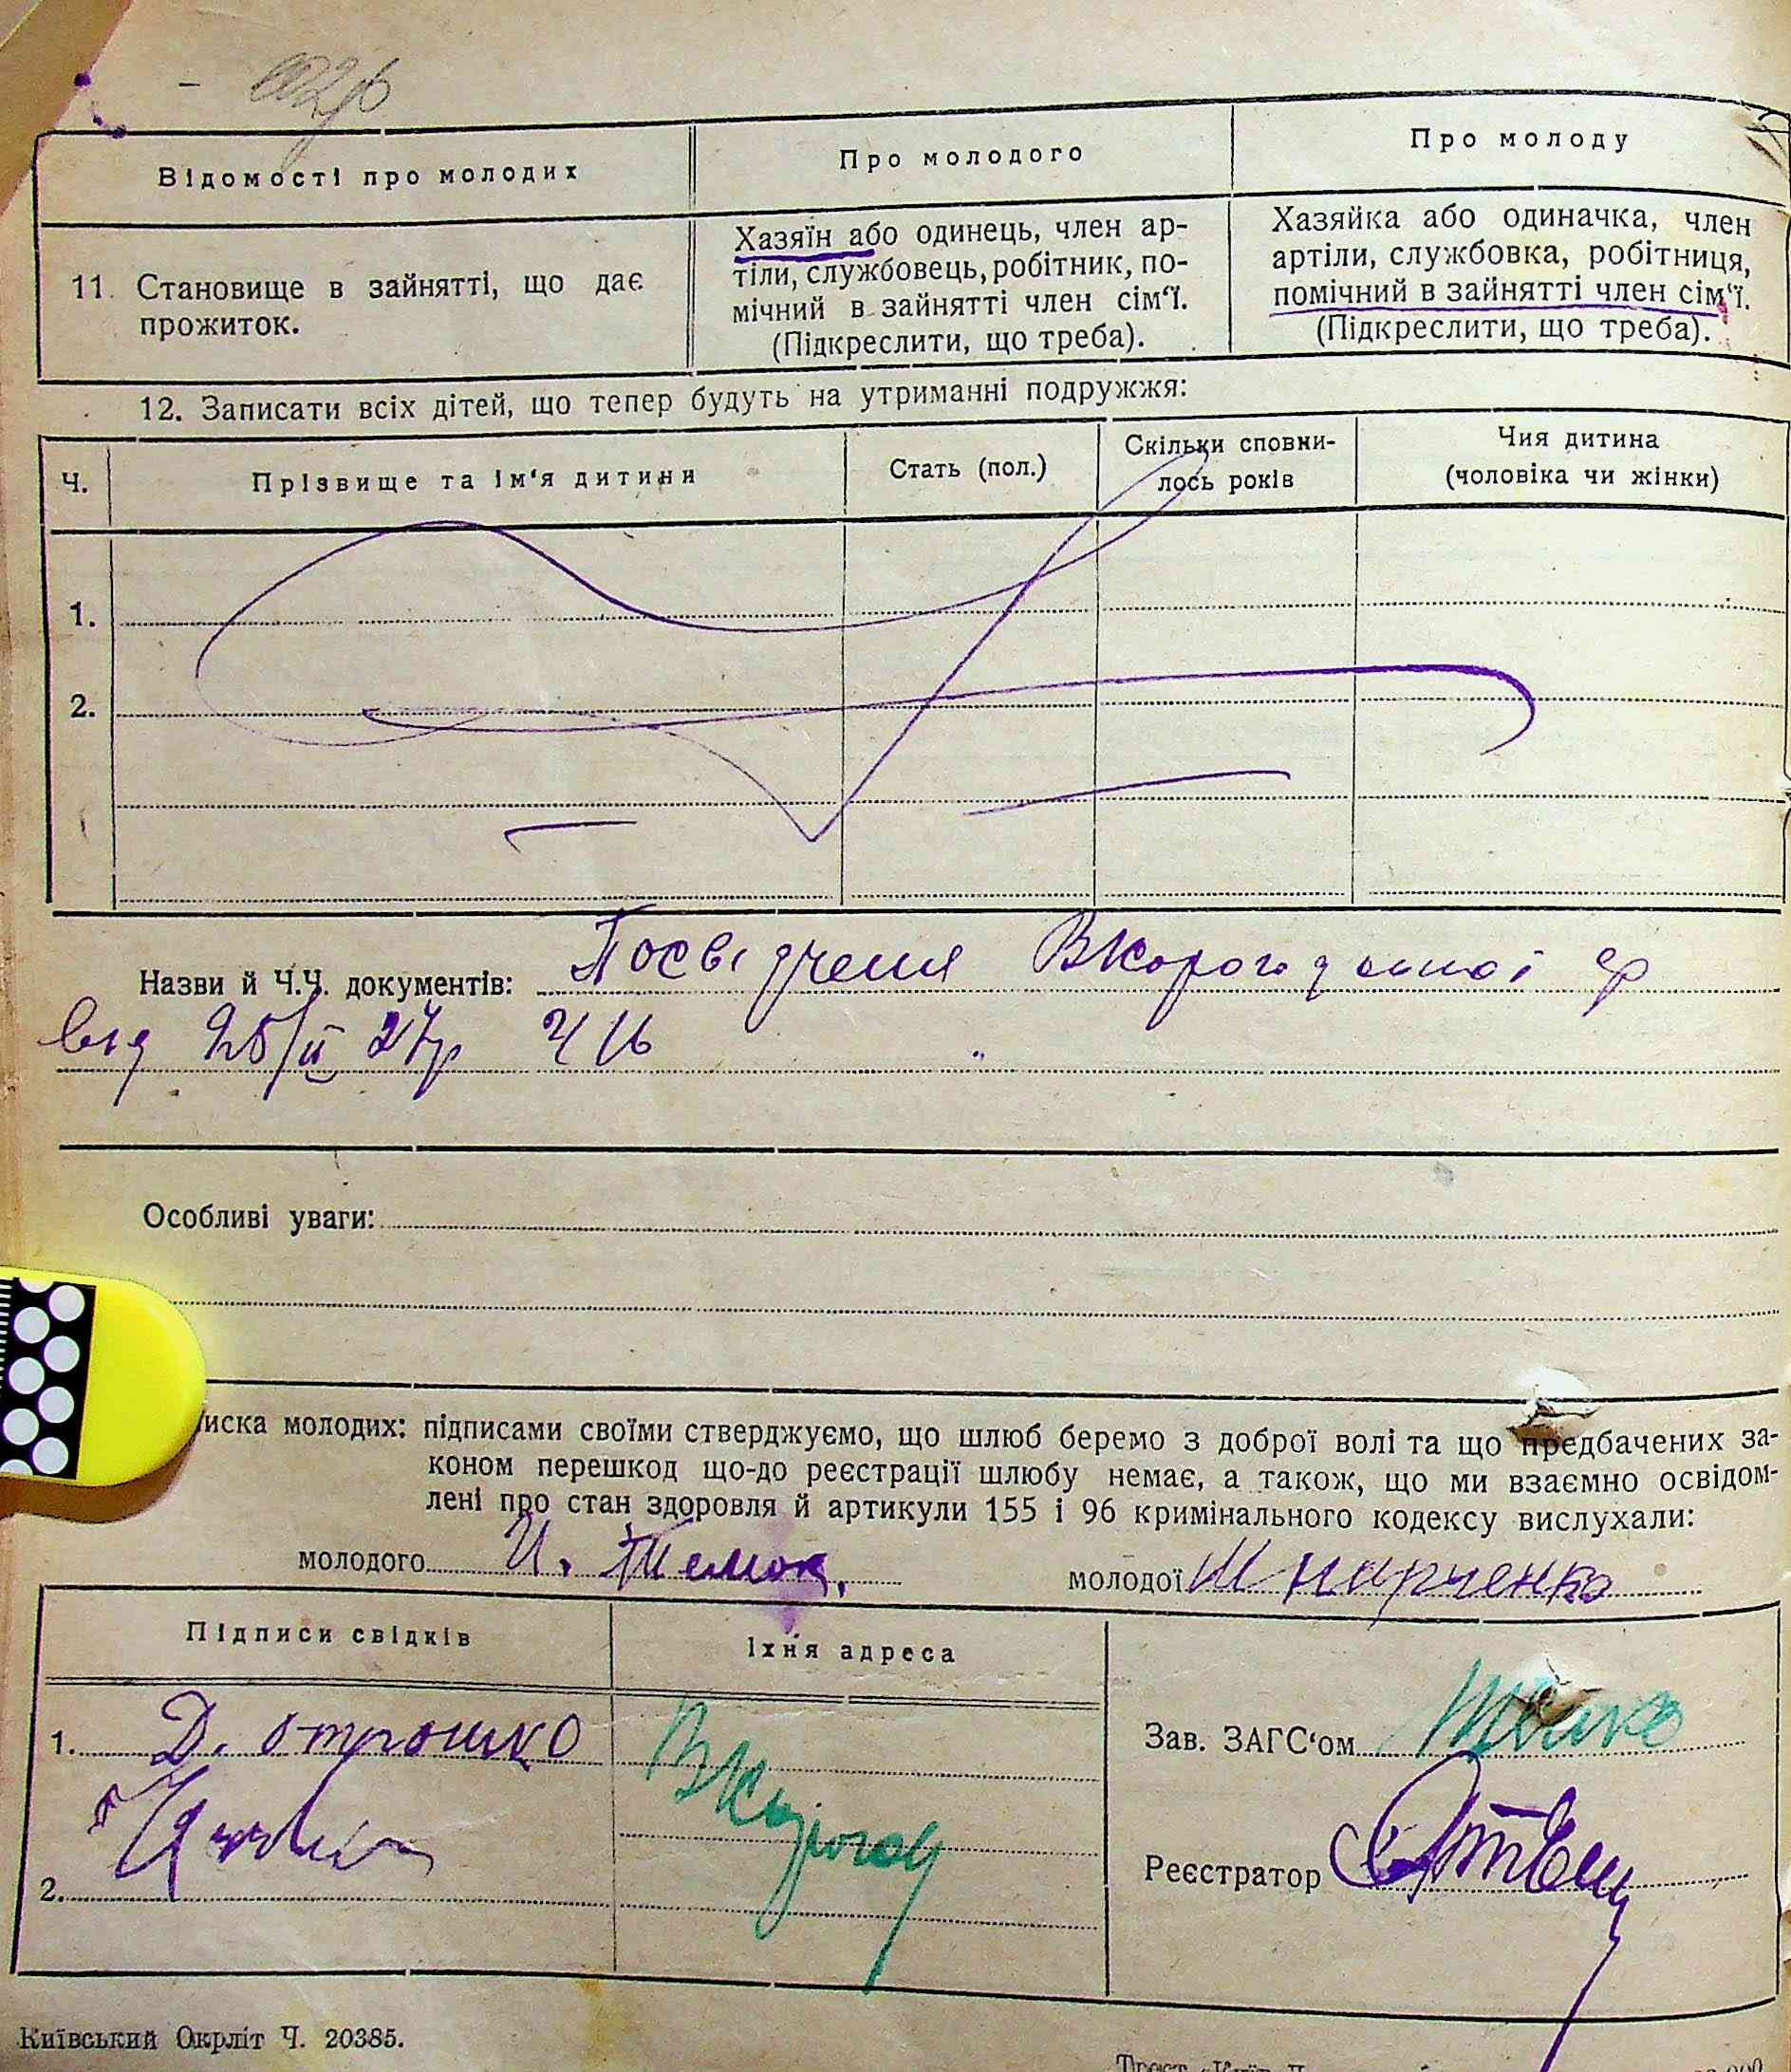 Відомості про молодих
Про молодого
Про молоду
11. Становище в зайнятті, що дає
прожиток.
Хазяїн або одинець, член ар-
тіли, службовець, робітник, по-
мічний в зайнятті член сім'ї.
(Підкреслити, що треба).
Хазяйка або одиначка, член
артіли, службовка, робітниця,
помічний в зайнятті член сім'ї.
(Підкреслити, що треба).
12. Записати всіх дітей, що тепер будуть на утриманні подружжя:
Ч.
Прізвище та ім'я дитини
Стать (пол.)
Скільки сповни-
лось років
Чия дитина
(чоловіка чи жінки)
1.
2.
Назви й Ч.Ч. документів: Посвідчення
від 25/II 27р Ч 16
Особливі уваги:
иска молодих: підписами своїми стверджуємо, що шлюб беремо з доброї волі та що предбачених за-
коном перешкод що-до реєстрації шлюбу немає, а також, що ми взаємно освідом-
лені про стан здоровля й артикули 155 і 96 кримінального кодексу вислухали:
молодого И. Темок
молодої Марченко
Підписи свідків
Їхня адреса
1. Д. Отрошко
2.
Зав. ЗАГС'ом
Реєстратор
Київський Окрліт Ч. 20385.